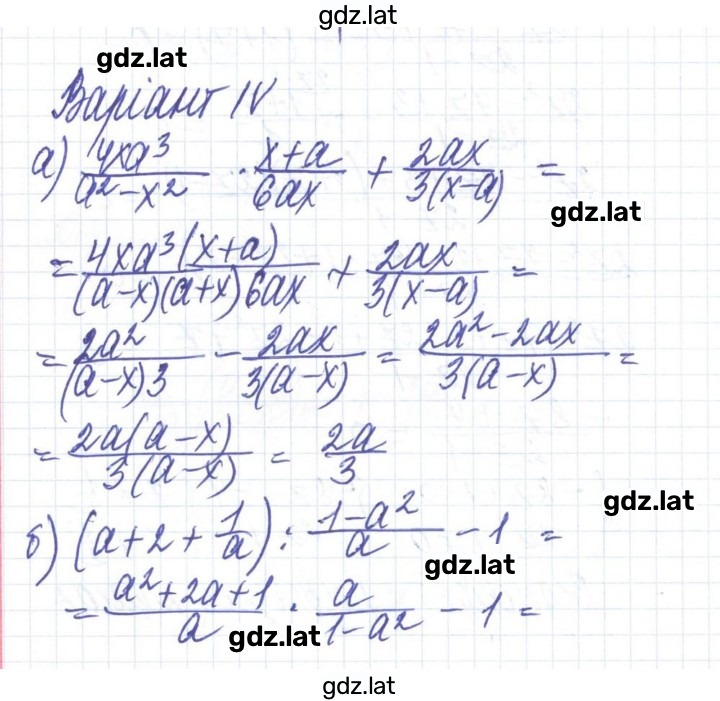 gdz.lat
gdz.lat
Варіант IV
а) 4xa³/(a²-x²) · (x+a)/(6ax) + 2ax/(3(x-a)) =
gdz.lat
= 4xa³(x+a)/((a-x)(a+x)6ax) + 2ax/(3(x-a)) =
= 2a²/((a-x)3) - 2ax/(3(a-x)) = (2a²-2ax)/(3(a-x)) =
= 2a(a-x)/(3(a-x)) = 2a/3
gdz.lat
б) (a+2+1/a) : (1-a²)/a - 1 =
gdz.lat
= (a²+2a+1)/a · a/(1-a²) - 1 =
gdz.lat
gdz.lat